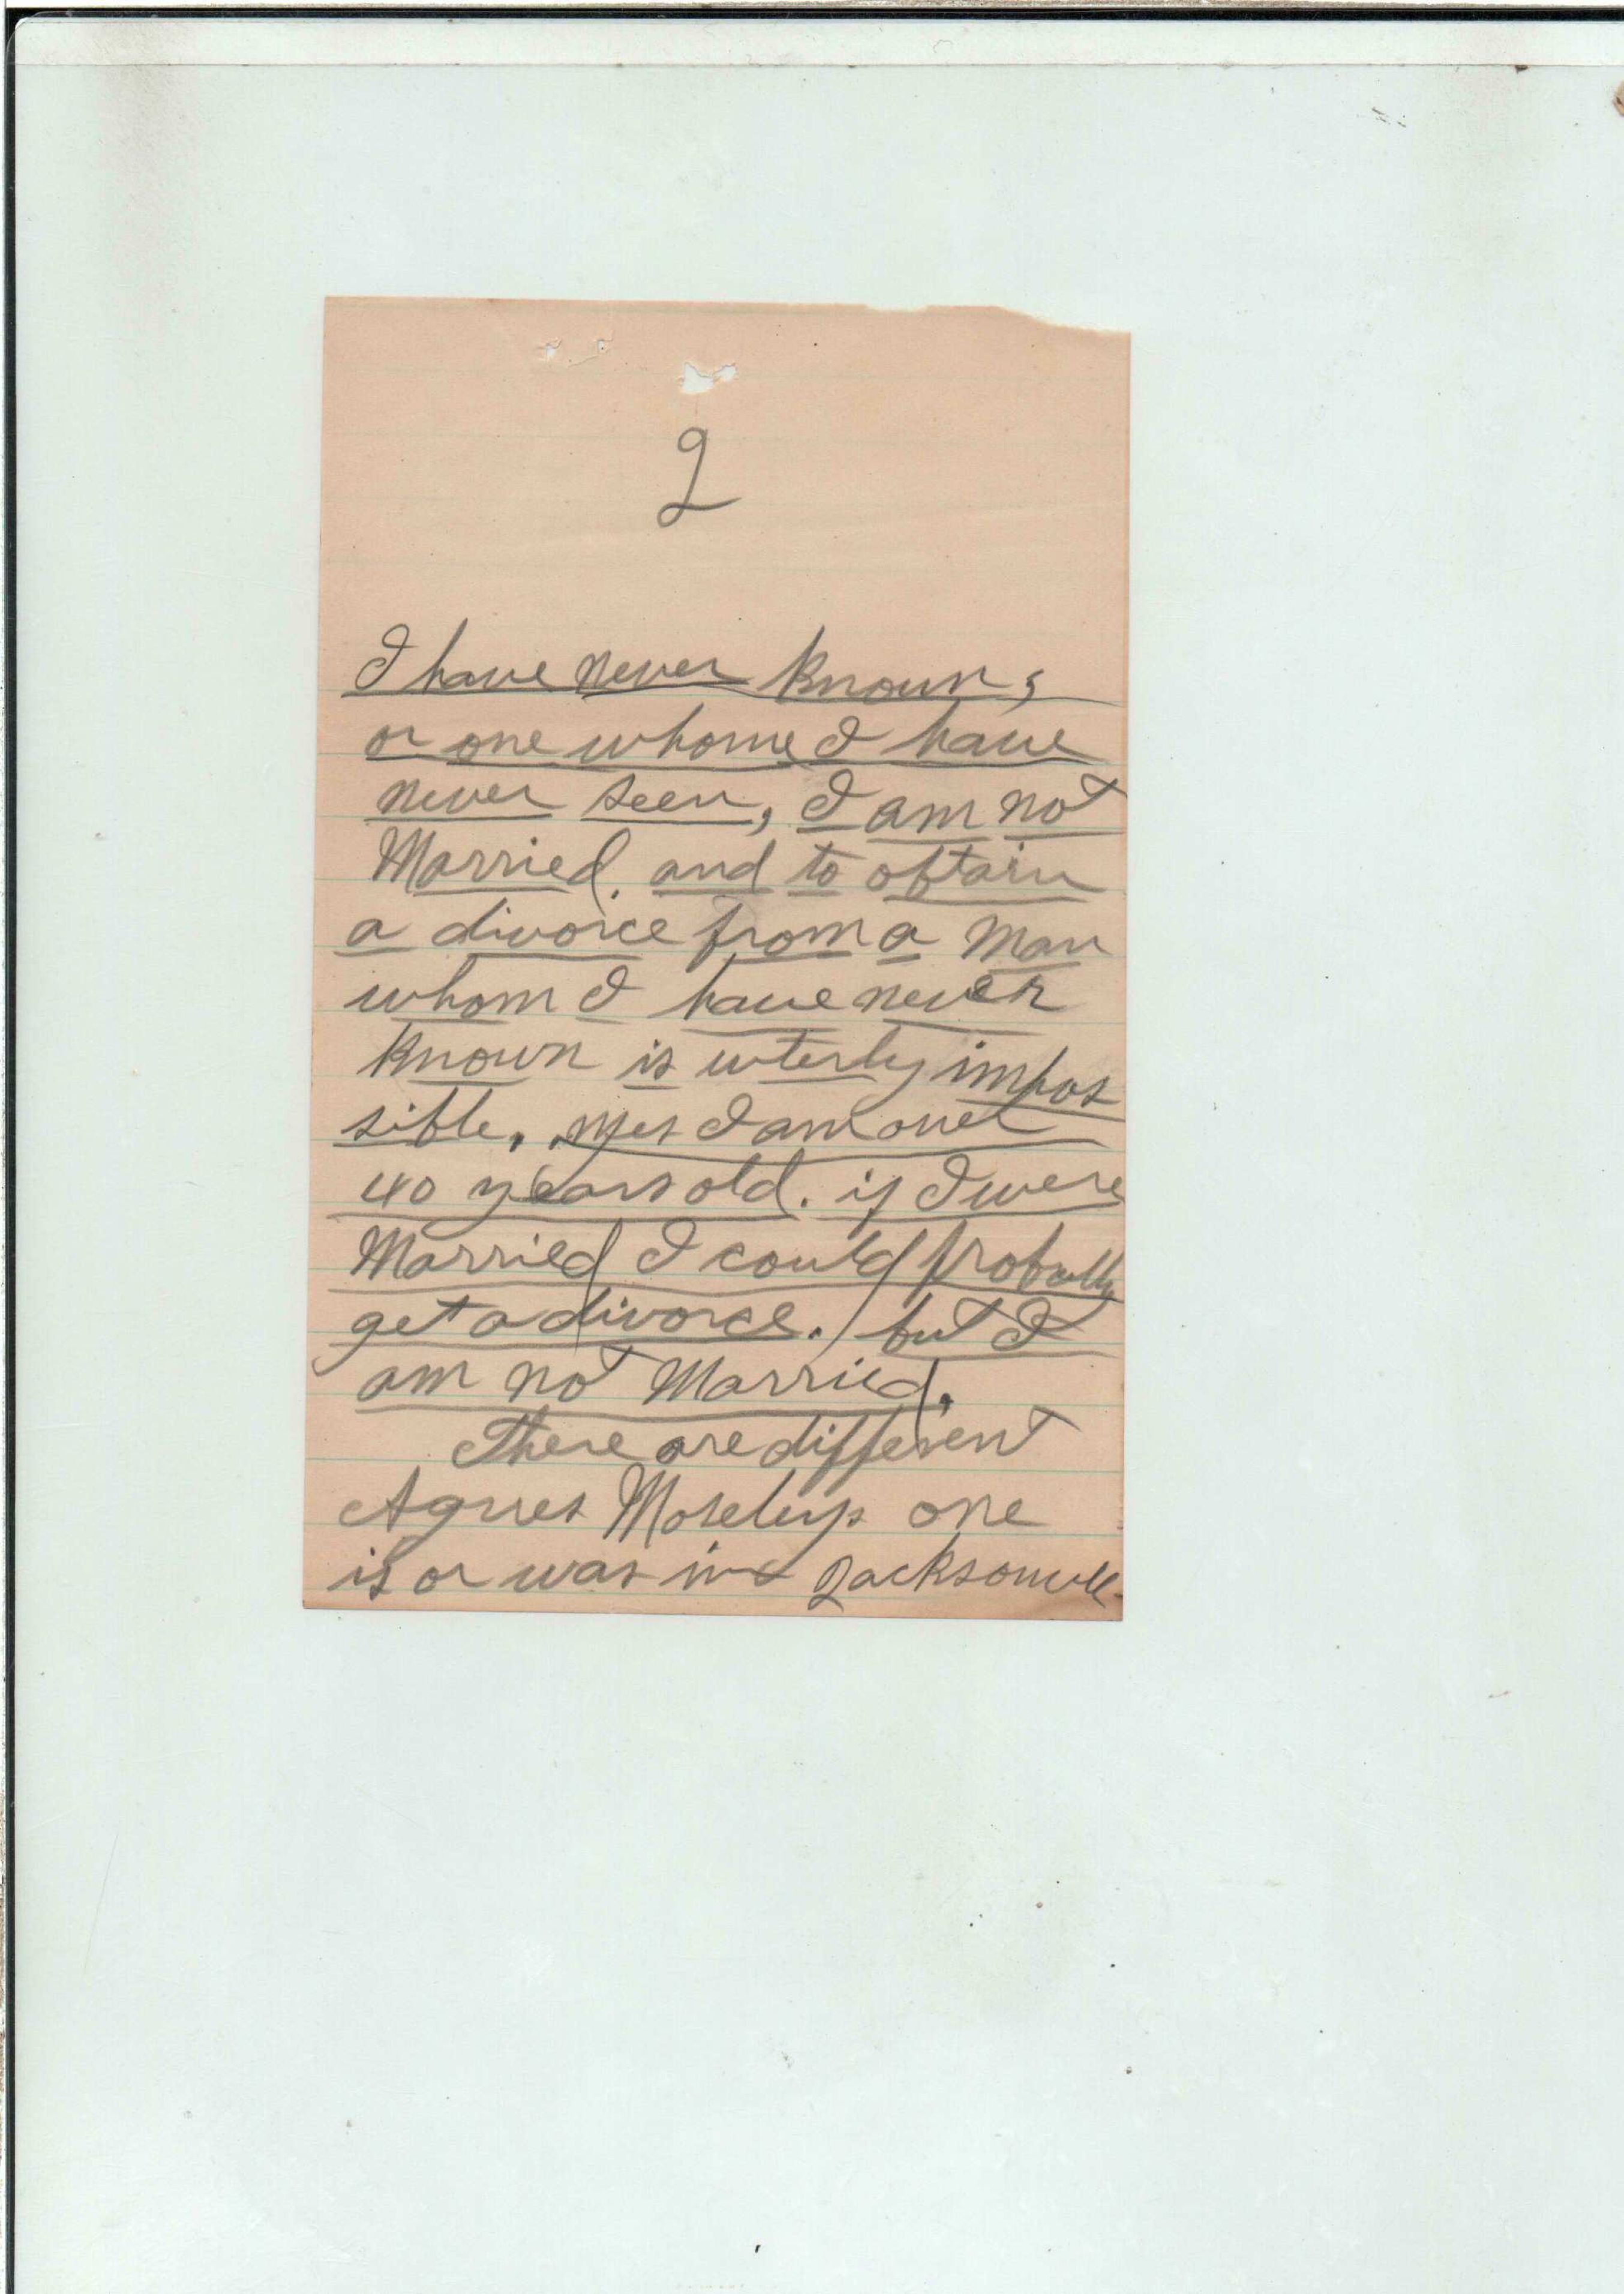 2
I have never known,
or one whome I have
never seen, I am not
Married. and to obtain
a divorce from a man
whom I have never
known is uterly impos
sible. yes I am over
40 years old. if I were
Married I could probally
get a divorce. but I
am not Married.
There are different
Agnes Moseleys one
is or was in Jacksonvill